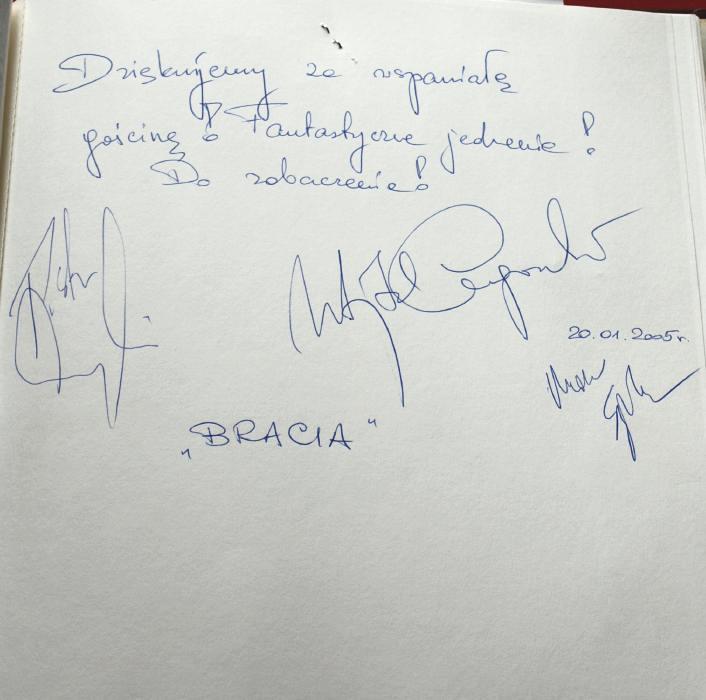 Dziękujemy za wspaniałą
gościnę i Fantastyczne jedzenie!
Do zobaczenia!
20.01.2005r.
„BRACIA"